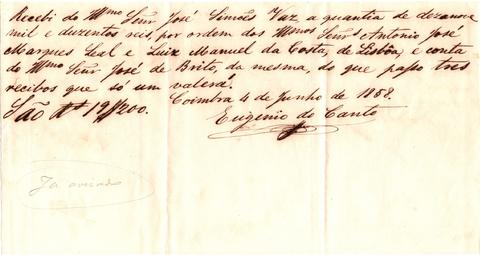 Recebi do Illmo Snr José Simões Vaz a quantia de dezanove
mil e duzentos reis, por ordem dos Illmos Snrs Antonio José
Marques Leal e Luiz Manuel da Costa, de Lisbôa, e conta
do Illmo Snr José de Brito, da mesma, do que passo tres
recibos que só um valerá.
Coimbra 4 de Junho de 1858.
São Rs 19$200.
Eugenio do Canto
Ja